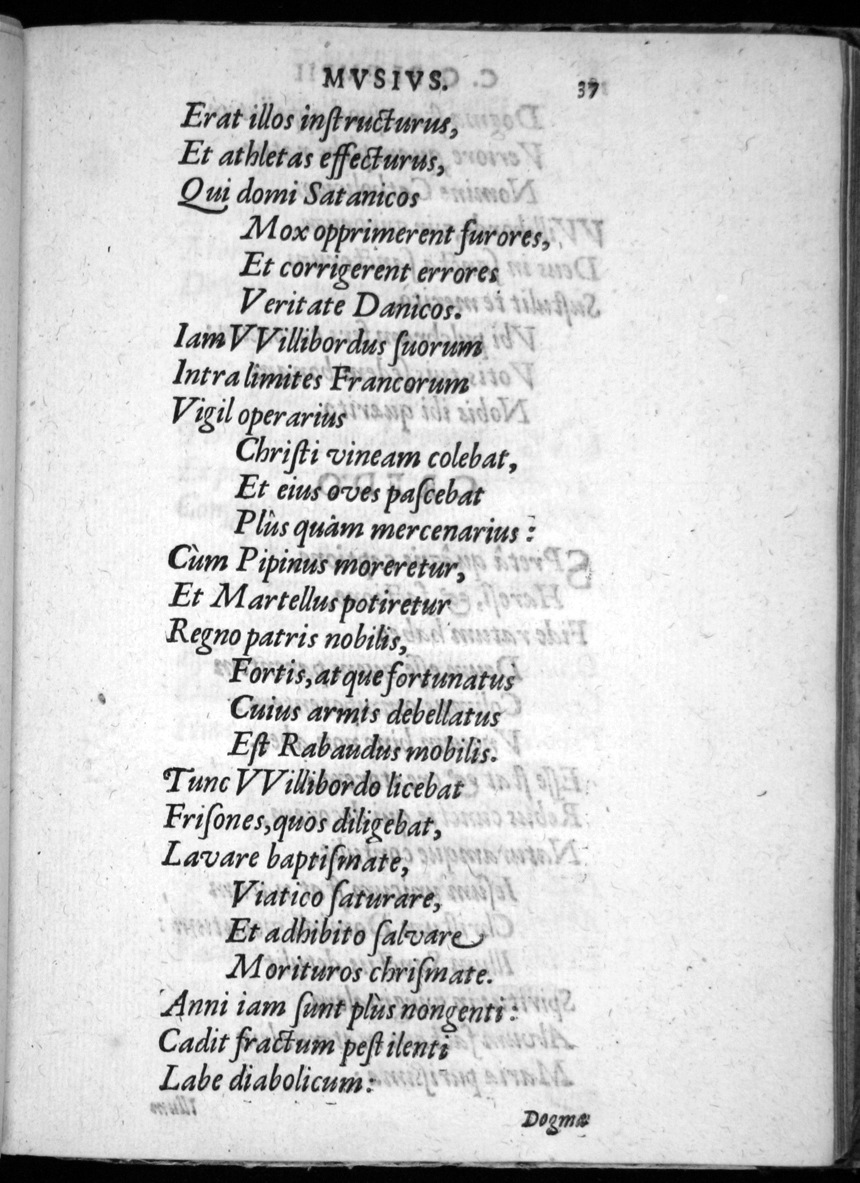 MVSIVS. 37
Erat illos inſtructurus,
Et athletas effecturus,
Qui domi Satanicos
Mox opprimerent furores,
Et corrigerent errores
Veritate Danicos.
Iam VVillibordus ſuorum
Intra limites Francorum
Vigil operarius
Chriſti vineam colebat,
Et eius oves paſcebat
Plùs quàm mercenarius :
Cùm Pipinus moreretur,
Et Martellus potiretur
Regno patris nobilis,
Fortis, atque fortunatus
Cuius armis debellatus
Eſt Rabaudus mobilis.
Tunc VVillibordo licebat
Friſones, quos diligebat,
Lavare baptiſmate,
Viatico ſaturare,
Et adhibito ſalvare
Morituros chriſmate.
Anni iam ſunt plùs nongenti :
Cadit fractum peſtilenti
Labe diabolicum :
Dogma